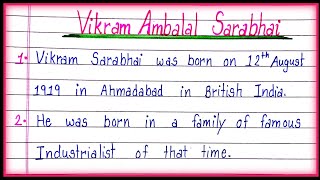 Vikram Ambalal Sarabhai
1. Vikram Sarabhai was born on 12th August
1919 in Ahmadabad in British India.
2. He was born in a family of famous
Industrialist of that time.